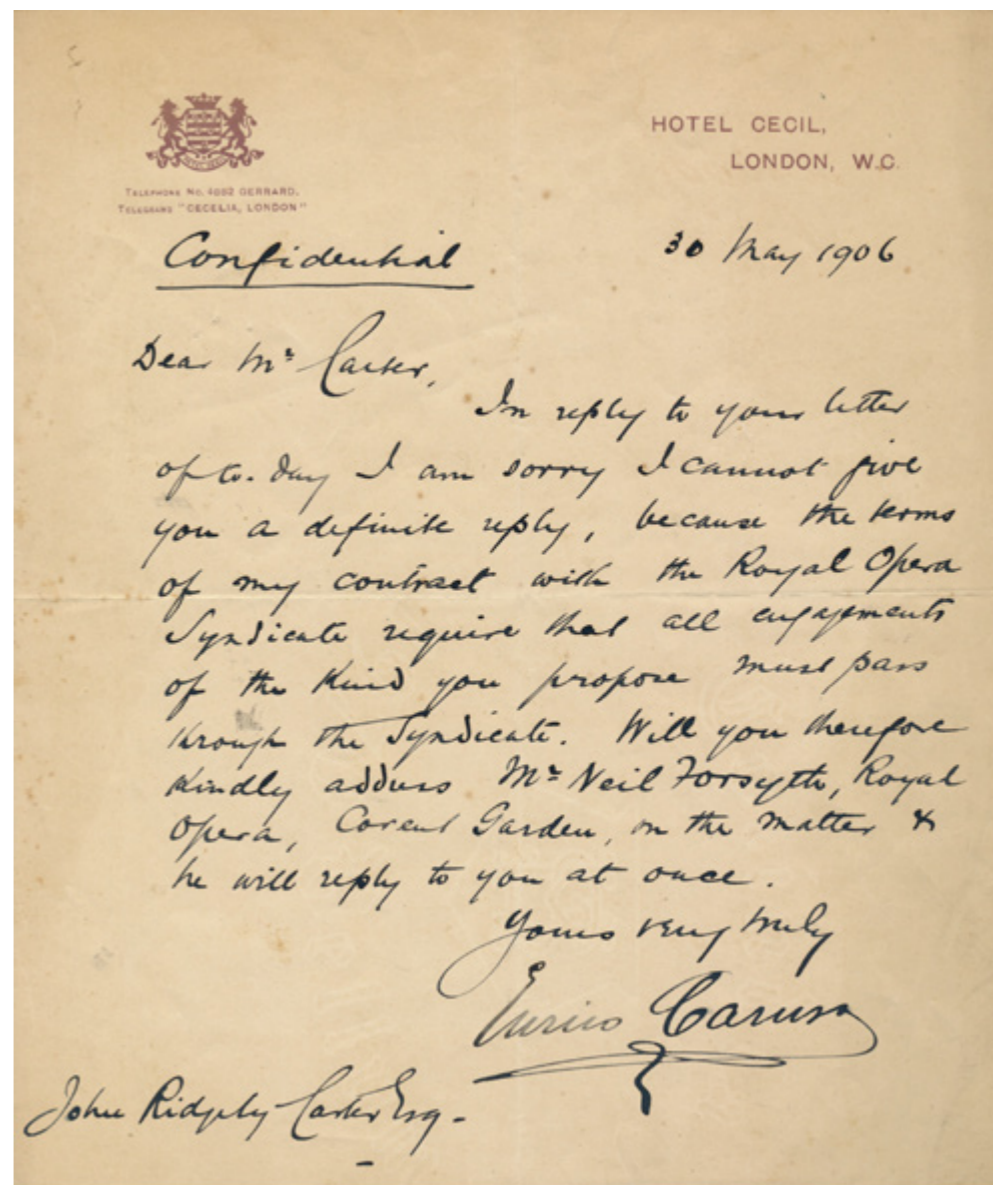 HOTEL CECIL,
LONDON, W.C.
TELEPHONE No. 4882 GERRARD,
TELEGRAMS "CECELIA, LONDON"
Confidential
30 May 1906
Dear Mr Carter,
In reply to your letter
of to-day I am sorry I cannot give
you a definite reply, because the terms
of my contract with the Royal Opera
Syndicate require that all engagements
of the kind you propose must pass
through the Syndicate. Will you therefore
kindly address Mr Neil Forsyth, Royal
Opera, Covent Garden, on the matter &
he will reply to you at once.
Yours very truly
Enrico Caruso
John Ridgely Carter Esq -